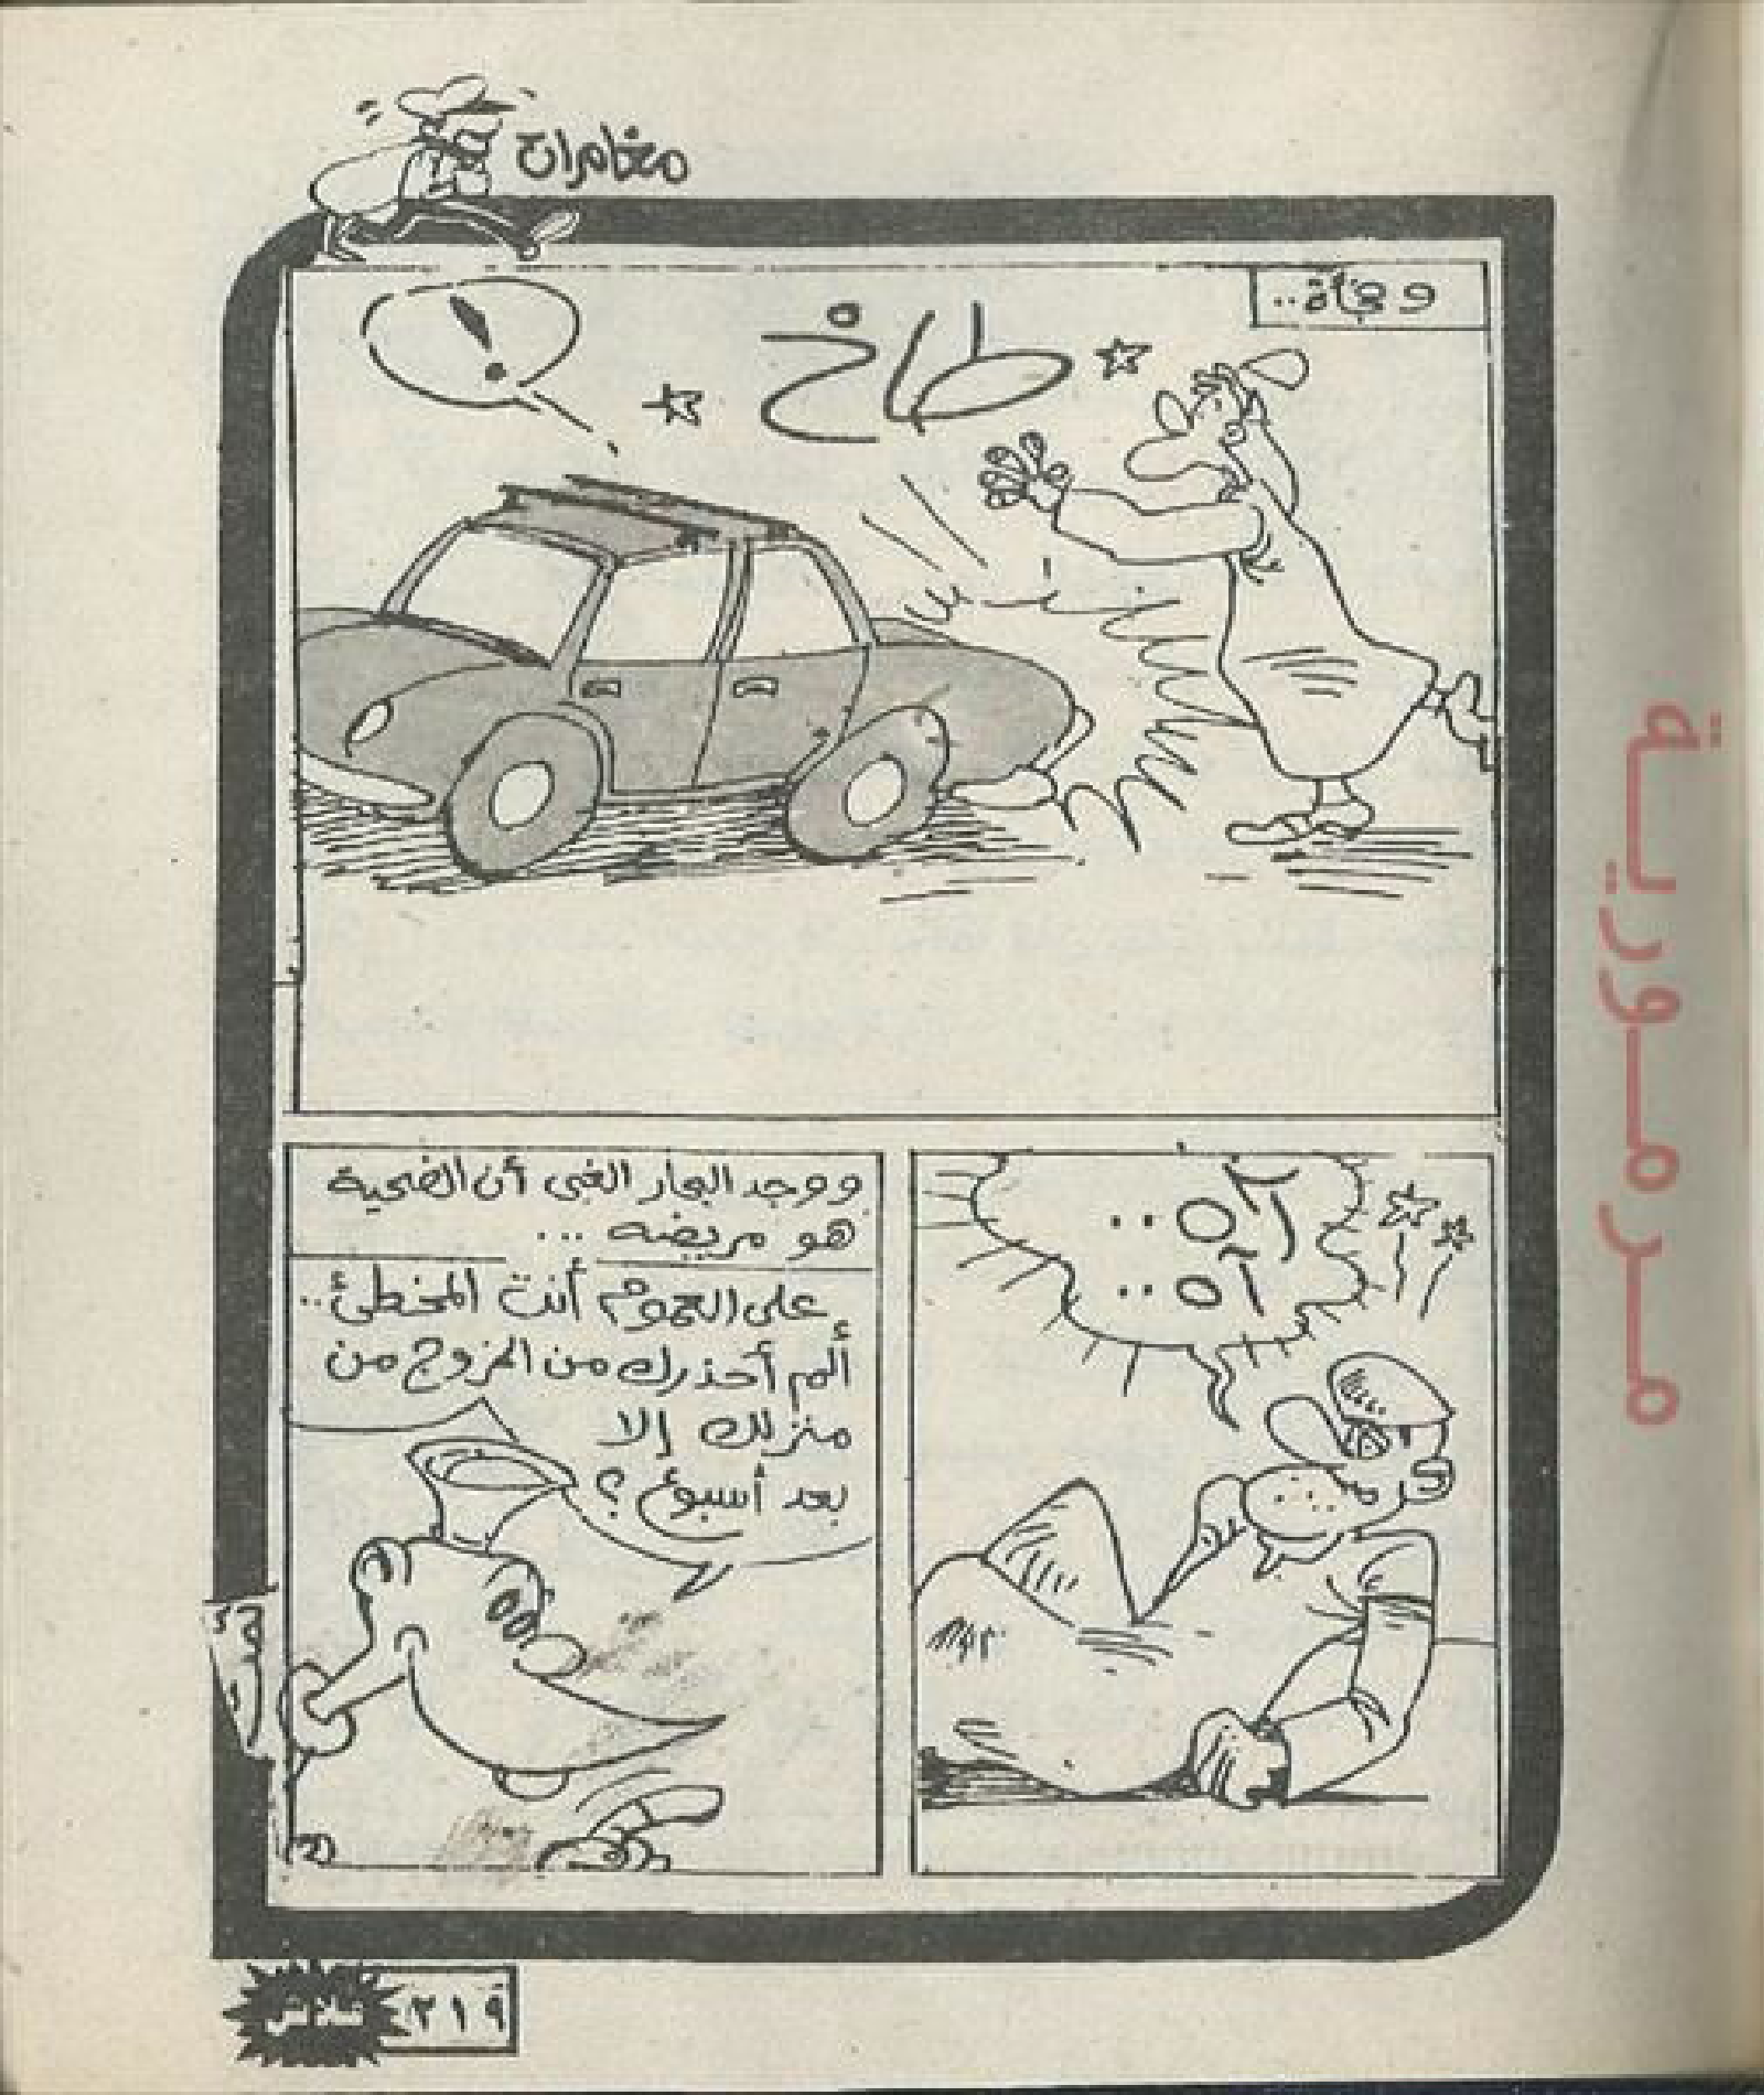 مغامرات
وفجأة..
طاخ
!
آه..
آه..
ووجد البجار الغبى أن الضحية
هو مريضه ...
على العموم أنت المخطئ..
ألم أحذرك من الخروج من
منزلك إلا
بعد أسبوع ؟
٢١٩
فلاش
مرمورية